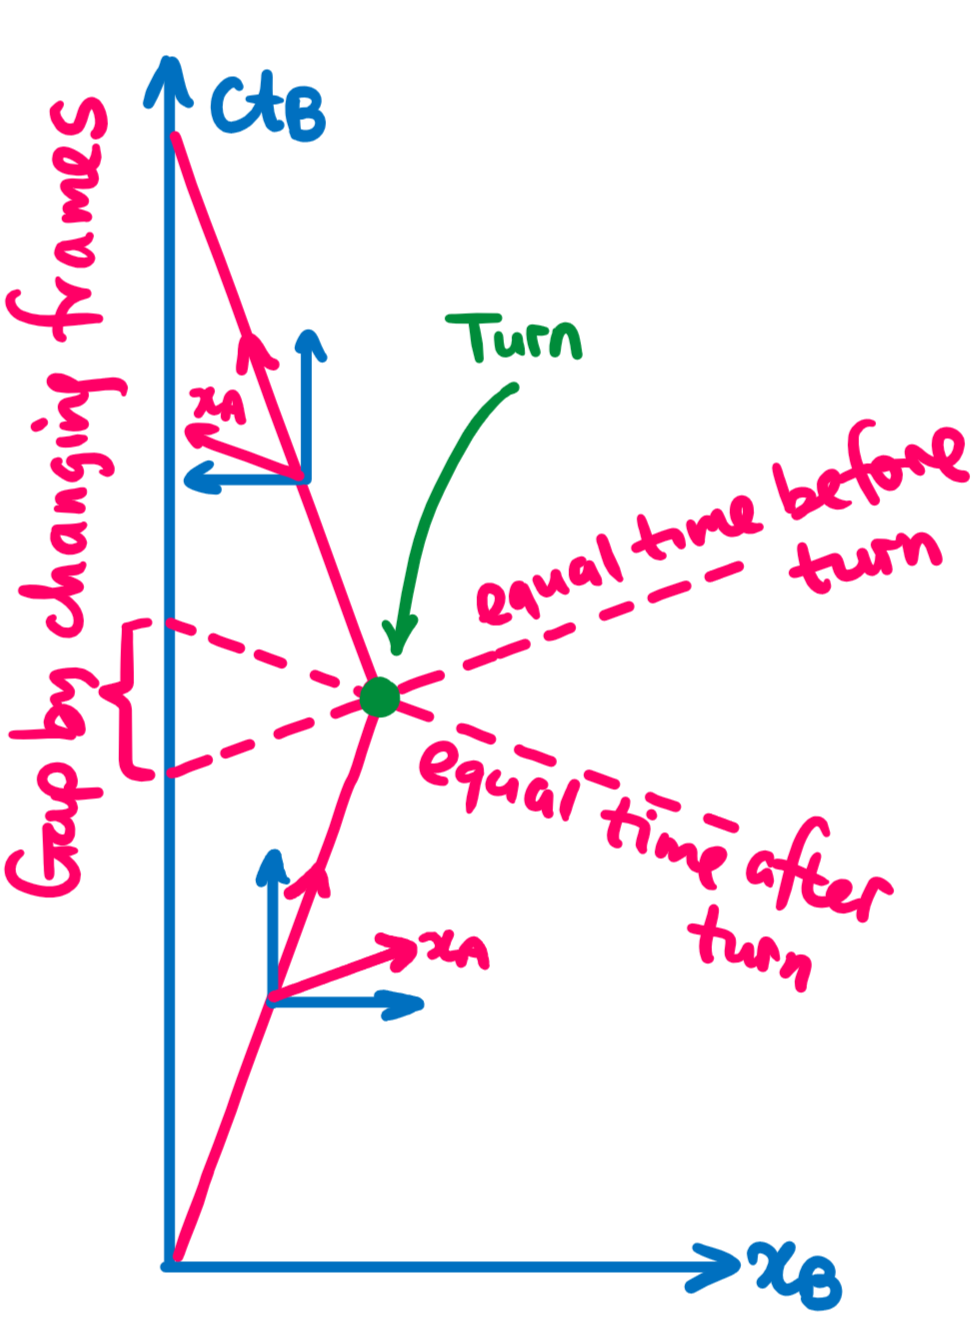 ctB
Gap by changing frames
Turn
xA
equal time before
turn
equal time after
turn
xA
xB